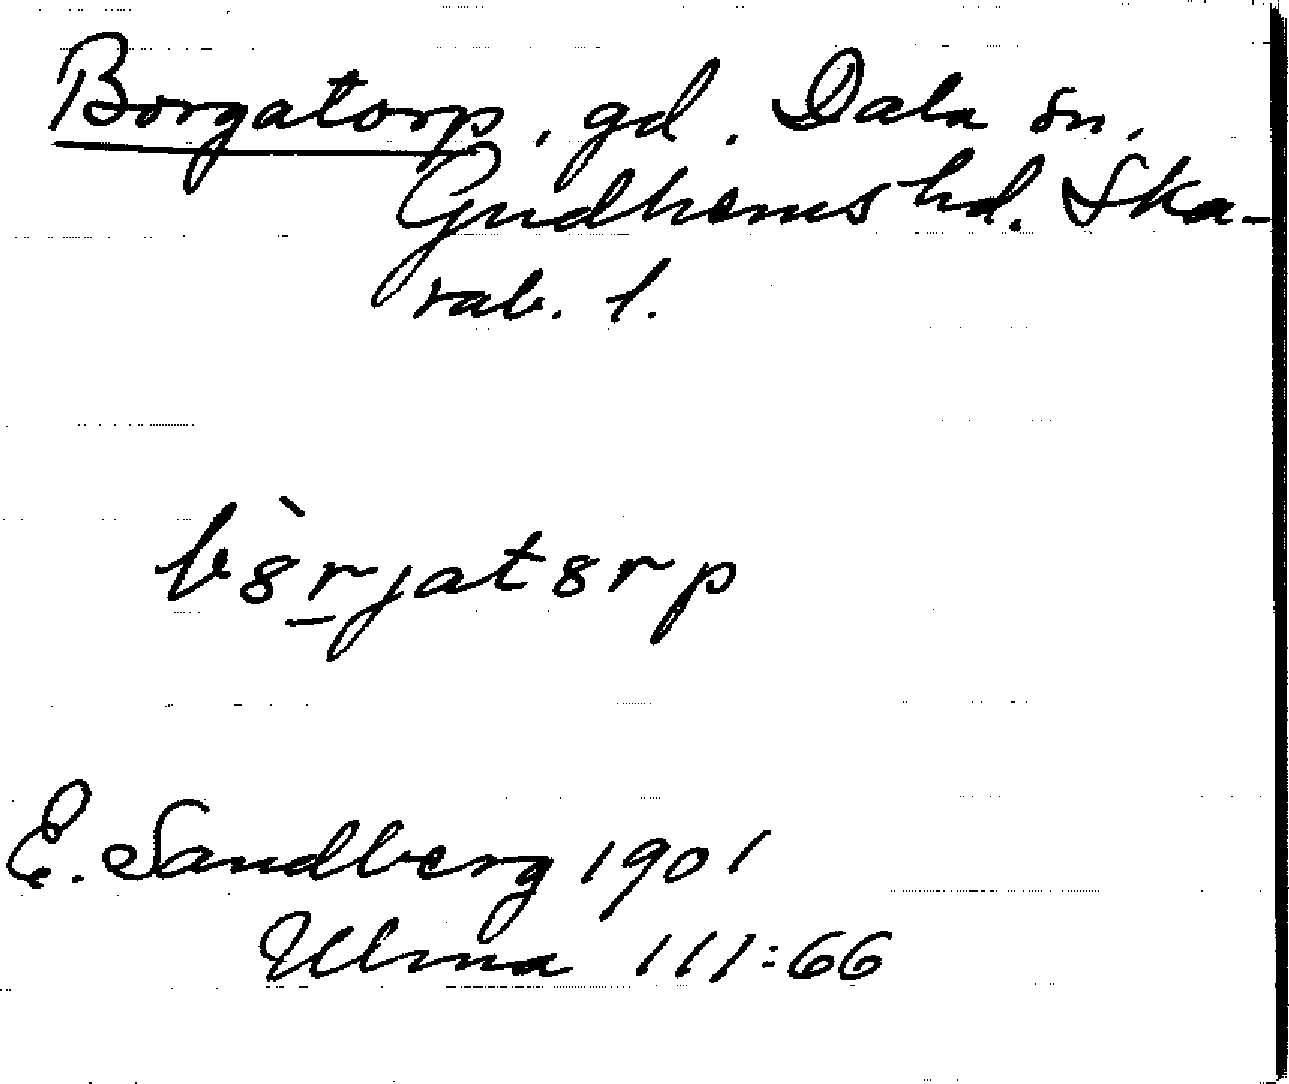 Borgatorp, gd. Dala sn,
Gudhems hd. Ska-
rab. l.
b8̀r̲jat8rp
E. Sandberg 1901
Ulma 111:66